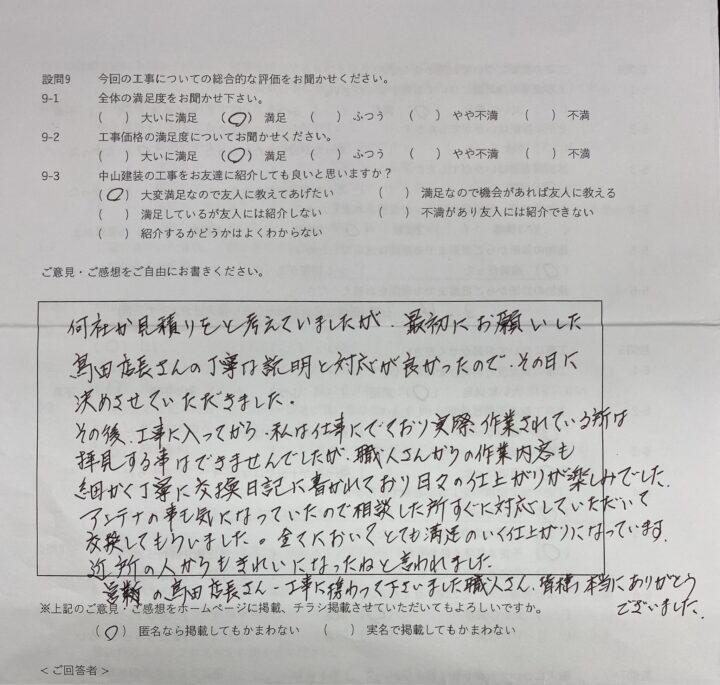 設問9 今回の工事についての総合的な評価をお聞かせください。
9-1 全体の満足度をお聞かせ下さい。
( ) 大いに満足 (○) 満足 ( ) ふつう ( ) やや不満 ( ) 不満
9-2 工事価格の満足度についてお聞かせください。
( ) 大いに満足 (○) 満足 ( ) ふつう ( ) やや不満 ( ) 不満
9-3 中山建装の工事をお友達に紹介しても良いと思いますか？
(○) 大変満足なので友人に教えてあげたい ( ) 満足なので機会があれば友人に教える
( ) 満足しているが友人には紹介しない ( ) 不満があり友人には紹介できない
( ) 紹介するかどうかはよくわからない
ご意見・ご感想をご自由にお書きください。
何社か見積りをと考えていましたが、最初にお願いした
髙田店長さんの丁寧な説明と対応が良かったので、その日に
決めさせていただきました。
その後、工事に入ってから、私は仕事にでており実際、作業されている所は
拝見する事はできませんでしたが、職人さんからの作業内容も
細かく丁寧に交換日記に書かれており日々の仕上がりが楽しみでした。
アンテナの事も気になっていたので相談した所すぐに対応していただいて
交換してもらいました。全てにおいてとても満足のいく仕上がりになっています。
近所の人からもきれいになったねと言われました。
営業の髙田店長さん、工事に携わって下さいました職人さん、皆様、本当にありがとう
ございました。
※上記のご意見・ご感想をホームページに掲載、チラシ掲載させていただいてもよろしいですか。
(○) 匿名なら掲載してもかまわない ( ) 実名で掲載してもかまわない
＜ご回答者＞